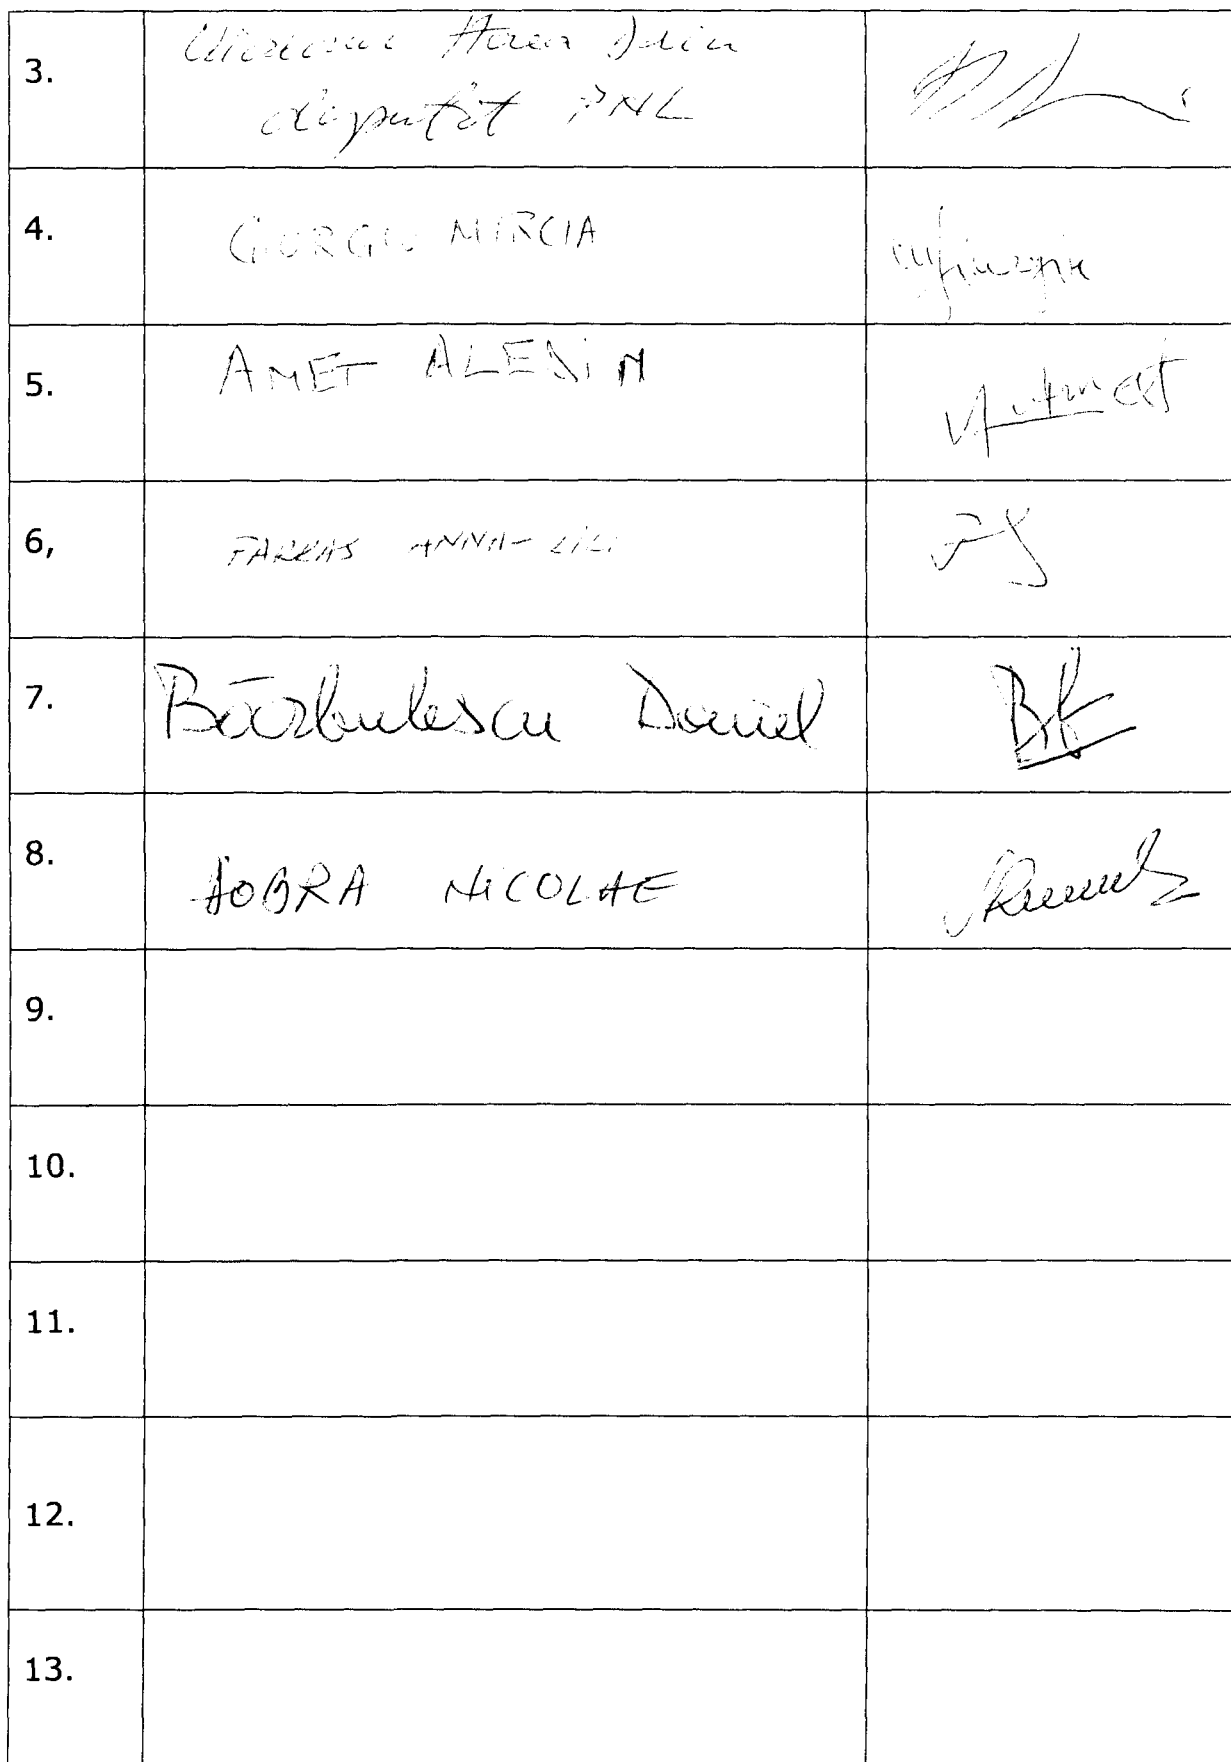 3.
Horea
deputat PNL
4. GIURGIU MIRCIA
5. AMET ALEDIN
6, FARKAS ANNA-LILI
7. Bărbulescu Daniel
8. DOBRA NICOLAE
9.
10.
11.
12.
13.